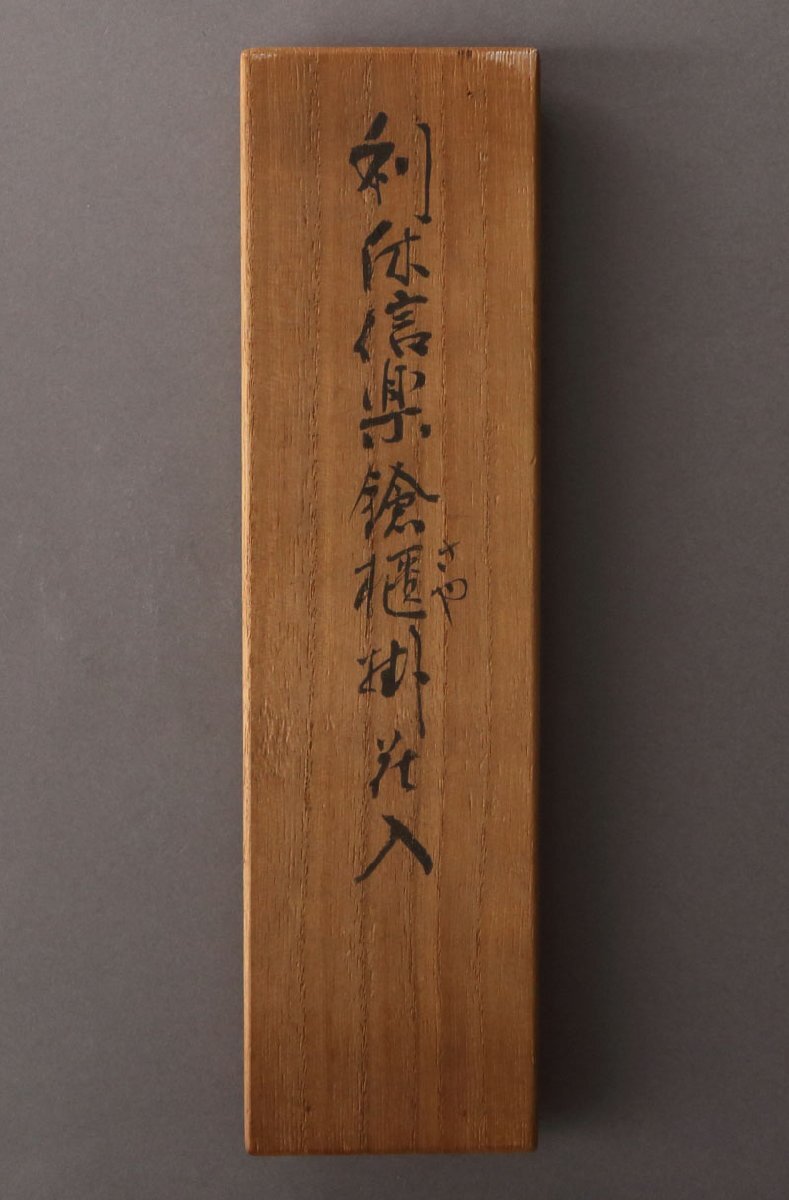 利休信楽鎗櫃掛花入
さや